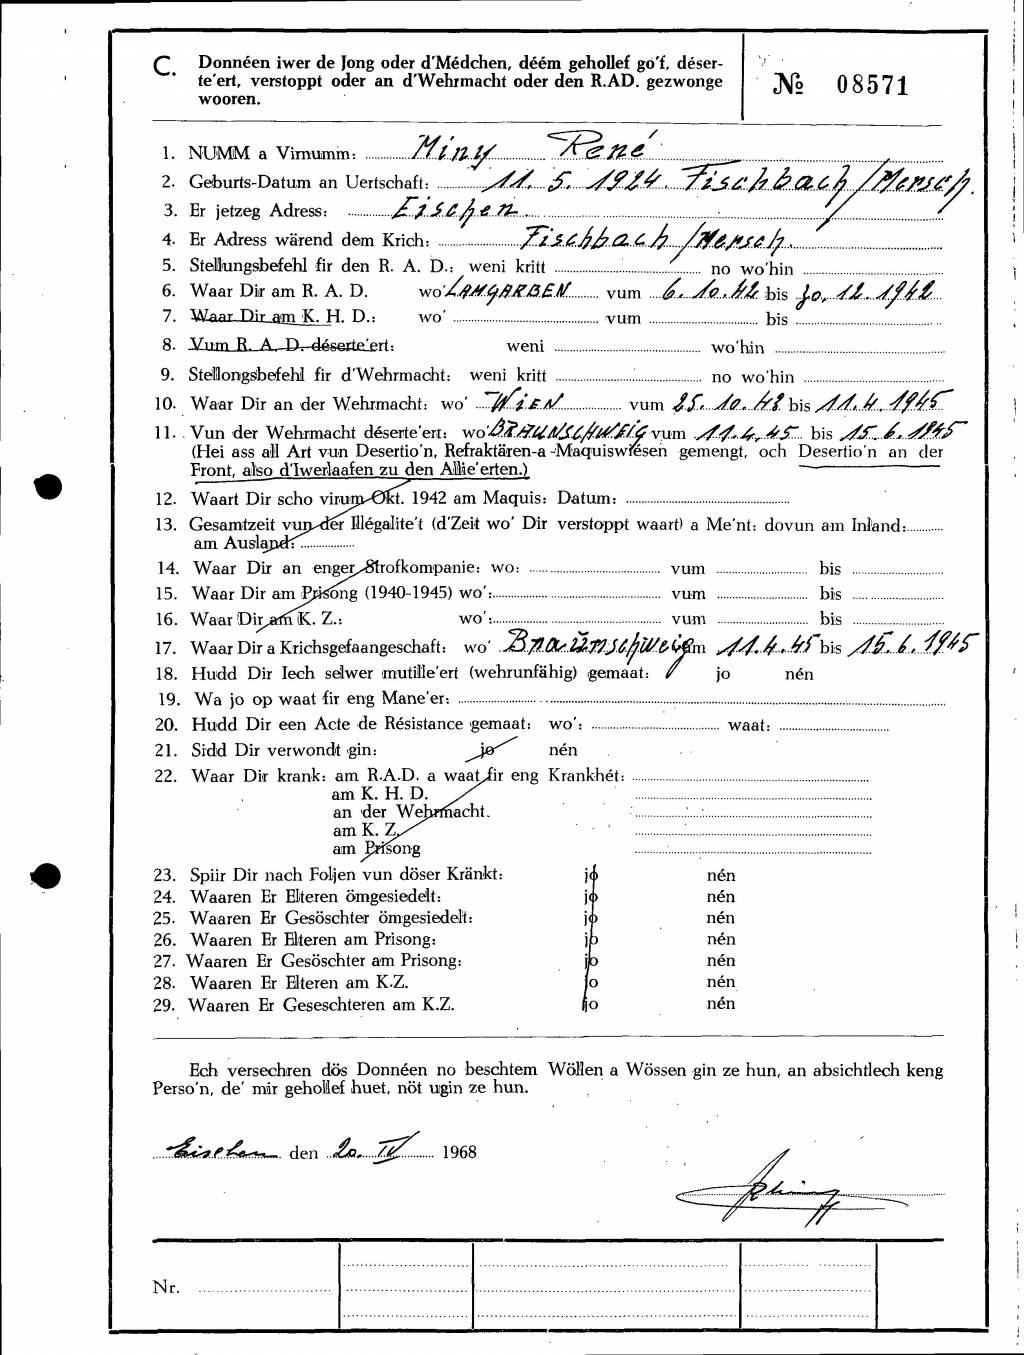 C. Donnéen iwer de Jong oder d'Médchen, déém gehollef go'f, déser-
te'ert, verstoppt oder an d'Wehrmacht oder den R.AD. gezwonge
wooren.
№ 08571
1. NUMM a Virnumm: Miny René
2. Geburts-Datum an Uertschaft: 11. 5. 1924. Fischbach/Mersch.
3. Er jetzeg Adress: Eischen
4. Er Adress wärend dem Krich: Fischbach/Mersch.
5. Stellungsbefehl fir den R. A. D.: weni kritt no wo'hin
6. Waar Dir am R. A. D. wo' LAMGARBEN vum 6.10.42 bis 30.12.1942
7. Waar Dir am K. H. D.: wo' vum bis
8. Vum R. A. D. déserte'ert: weni wo'hin
9. Stellongsbefehl fir d'Wehrmacht: weni kritt no wo'hin
10. Waar Dir an der Wehrmacht: wo' WIEN vum 25.10.43 bis 11.4.1945
11. Vun der Wehrmacht déserte'ert: wo' BRAUNSCHWEIG vum 11.4.45 bis 15.6.1945
(Hei ass all Art vun Desertio'n, Refraktären-a-Maquiswiesen gemengt, och Desertio'n an der
Front, also d'Iwerlaafen zu den Allie'erten.)
12. Waart Dir scho virum Okt. 1942 am Maquis: Datum:
13. Gesamtzeit vun der Illégalite't (d'Zeit wo' Dir verstoppt waart) a Me'nt: dovun am Inland:
am Ausland:
14. Waar Dir an enger Strofkompanie: wo: vum bis
15. Waar Dir am Prisong (1940-1945) wo': vum bis
16. Waar Dir am K. Z.: wo': vum bis
17. Waar Dir a Krichsgefaangeschaft: wo' Braunschweig vum 11.4.45 bis 15.6.1945
18. Hudd Dir Iech selwer mutille'ert (wehrunfähig) gemaat: jo nén
19. Wa jo op waat fir eng Mane'er:
20. Hudd Dir een Acte de Résistance gemaat: wo': waat:
21. Sidd Dir verwondt gin: jo nén
22. Waar Dir krank: am R.A.D. a waat fir eng Krankhét:
am K. H. D.
an der Wehrmacht.
am K. Z.
am Prisong
23. Spiir Dir nach Foljen vun döser Kränkt: jo nén
24. Waaren Er Elteren ömgesiedelt: jo nén
25. Waaren Er Gesöschter ömgesiedelt: jo nén
26. Waaren Er Elteren am Prisong: jo nén
27. Waaren Er Gesöschter am Prisong: jo nén
28. Waaren Er Elteren am K.Z. jo nén
29. Waaren Er Geseschteren am K.Z. jo nén
Ech versechren dös Donnéen no beschtem Wöllen a Wössen gin ze hun, an absichtlech keng
Perso'n, de' mir gehollef huet, nöt ugin ze hun.
Eischen den 20. IV 1968
Nr.